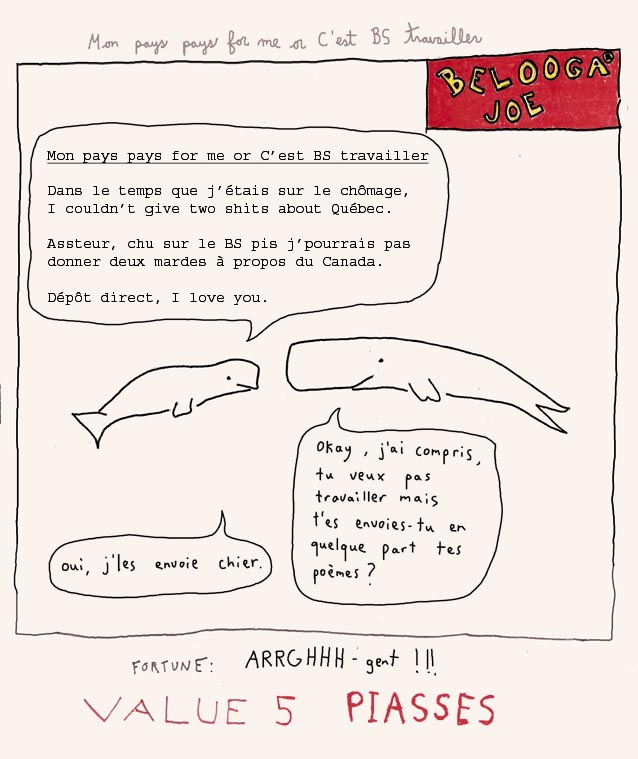 Mon pays pays for me or C'est BS travailler
BELOOGA
JOE
Mon pays pays for me or C'est BS travailler
Dans le temps que j'étais sur le chômage,
I couldn't give two shits about Québec.
Assteur, chu sur le BS pis j'pourrais pas
donner deux mardes à propos du Canada.
Dépôt direct, I love you.
Okay, j'ai compris,
tu veux pas
travailler mais
t'es envoies-tu en
quelque part tes
poèmes ?
oui, j'les envoie chier.
FORTUNE: ARRGHHH-gent !!!
VALUE 5 PIASSES